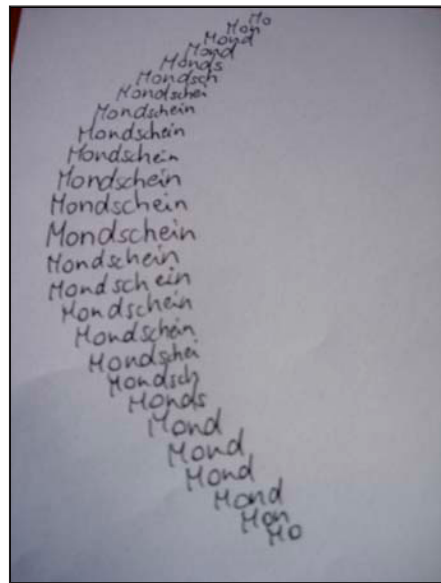 Mo
Mon
Mond
Mond
Monds
Mondsch
Mondschei
Mondschein
Mondschein
Mondschein
Mondschein
Mondschein
Mondschein
Mondschein
Mondschein
Mondschein
Mondschein
Mondschei
Mondsch
Monds
Mond
Mond
Mond
Mond
Mon
Mo